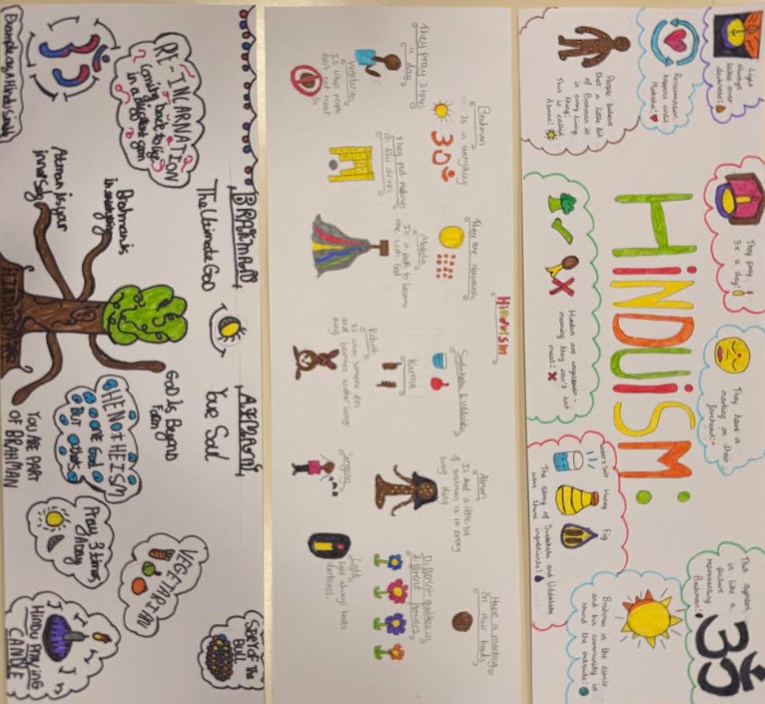 Light
always
takes over
darkness!
Reincarnation
Means until
Moksha!
People believe
that a little bit
of Brahman is
in every living
thing!
This is called
Atman!
They pray
3x a day!
HiNDUiSM:
Hindus are vegetarian -
meaning they can't eat
meat!
They have a
marking on their
forehead!
Water Salt
Honey
Fig
The story of Svetaketu and Uddalaka
uses these ingredients!
This symbol
is like a
picture
representing
Brahman!
Brahman is the circle
and his community is
round the outside!
Hinduism
They pray 3 times
a day
Vegetarian
Is when people
don't eat meat
Brahman
Is in everything
They put markings
on their doors
They are
Moksha
Is a path to become
one with God
Svetaketu &
Karma
Rebirth
Is when someone dies
and becomes another living
thing
Atman
Is that a little bit
of brahman is in every
living thing
Singing
Have a marking
on their heads
Different qualities in
different flowers
Light
light always beats
darkness
Example of a Hindu Smith
RE-INCARNATION
Coming back to life
in a different form
BRAHMAN
The Ultimate God
Brahman is
in everything
Atman is your
inner self
HINDUISM
ATMAN
Your Soul
God Is Beyond
Form
HENOTHEISM
ONE God
BUT others
YOU ARE PART
OF BRAHMAN
Pray 3 times
A day
VEGETARIAN
STORY OF THE
HINDU PRAYING
CANDLE